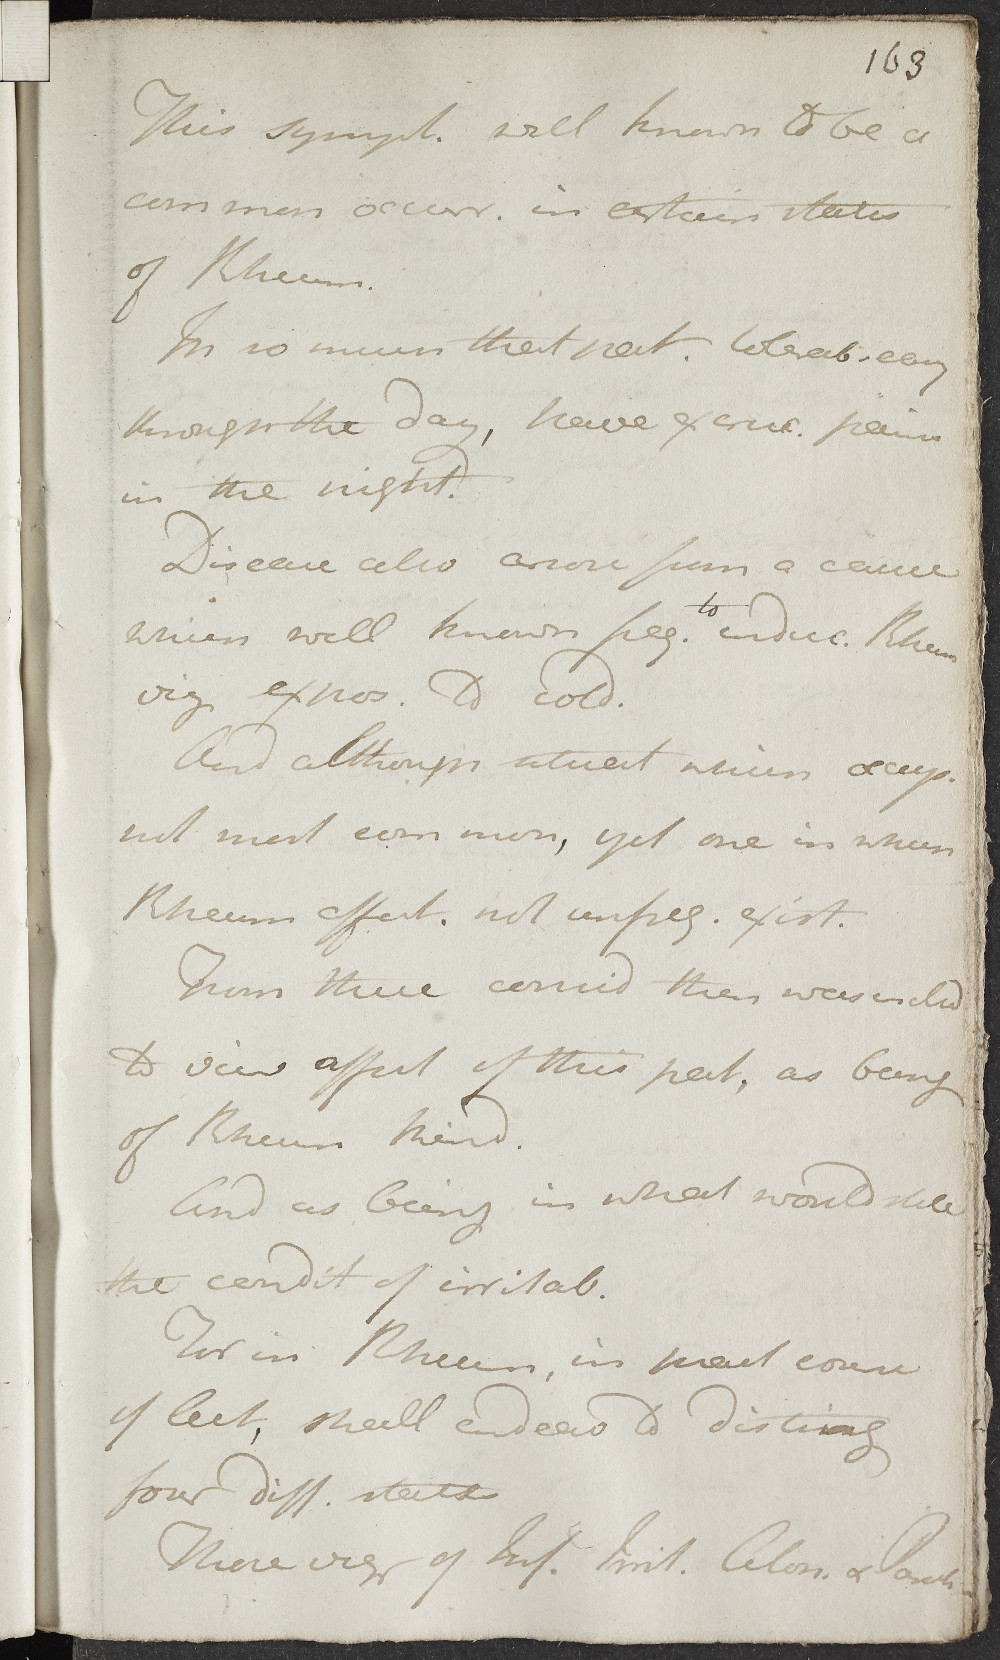 163
This sympt. well known to be a
common occurr. in certain states
of Rheum.
In so much that pat. tolerab. easy
through the day, have excruc. pain
in the night.
Disease also arose from a cause
which well known freq. to induc. Rheum
viz expos. to cold.
And although situat which occup.
not most common, yet one in which
Rheum affect. not unfreq. exist.
From these consid then was inclid
to view affect of this pat, as being
of Rheum kind.
And as being in what would
the condit of irritab.
For in Rheum, in pract course
of lect, shall endeav to disting
four diff. states
These viz of Inf. Irrit. Aton. &